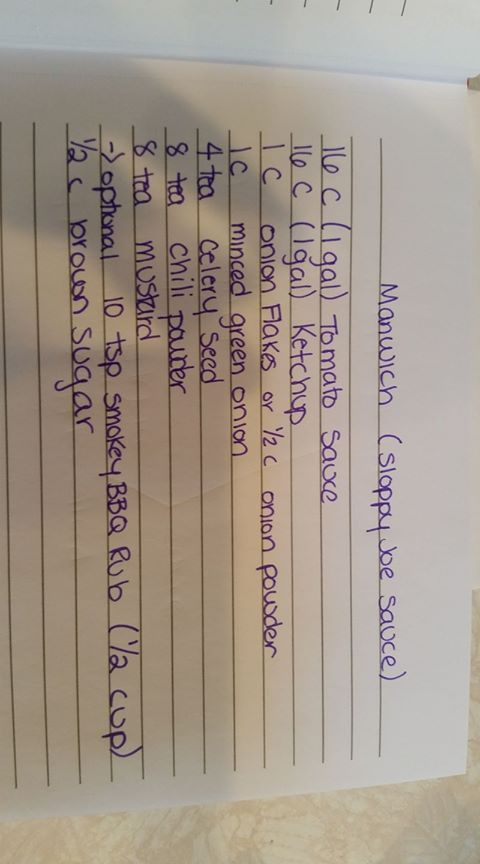 Manwich (Sloppy Joe Sauce)
16 C (1 gal) Tomato Sauce
16 C (1 gal) Ketchup
1 C onion Flakes or 1/2 C onion powder
1 C minced green onion
4 tea Celery Seed
8 tea chili powder
8 tea mustard
-> optional 10 tsp Smokey BBQ Rub (1/2 cup)
1/2 C brown sugar